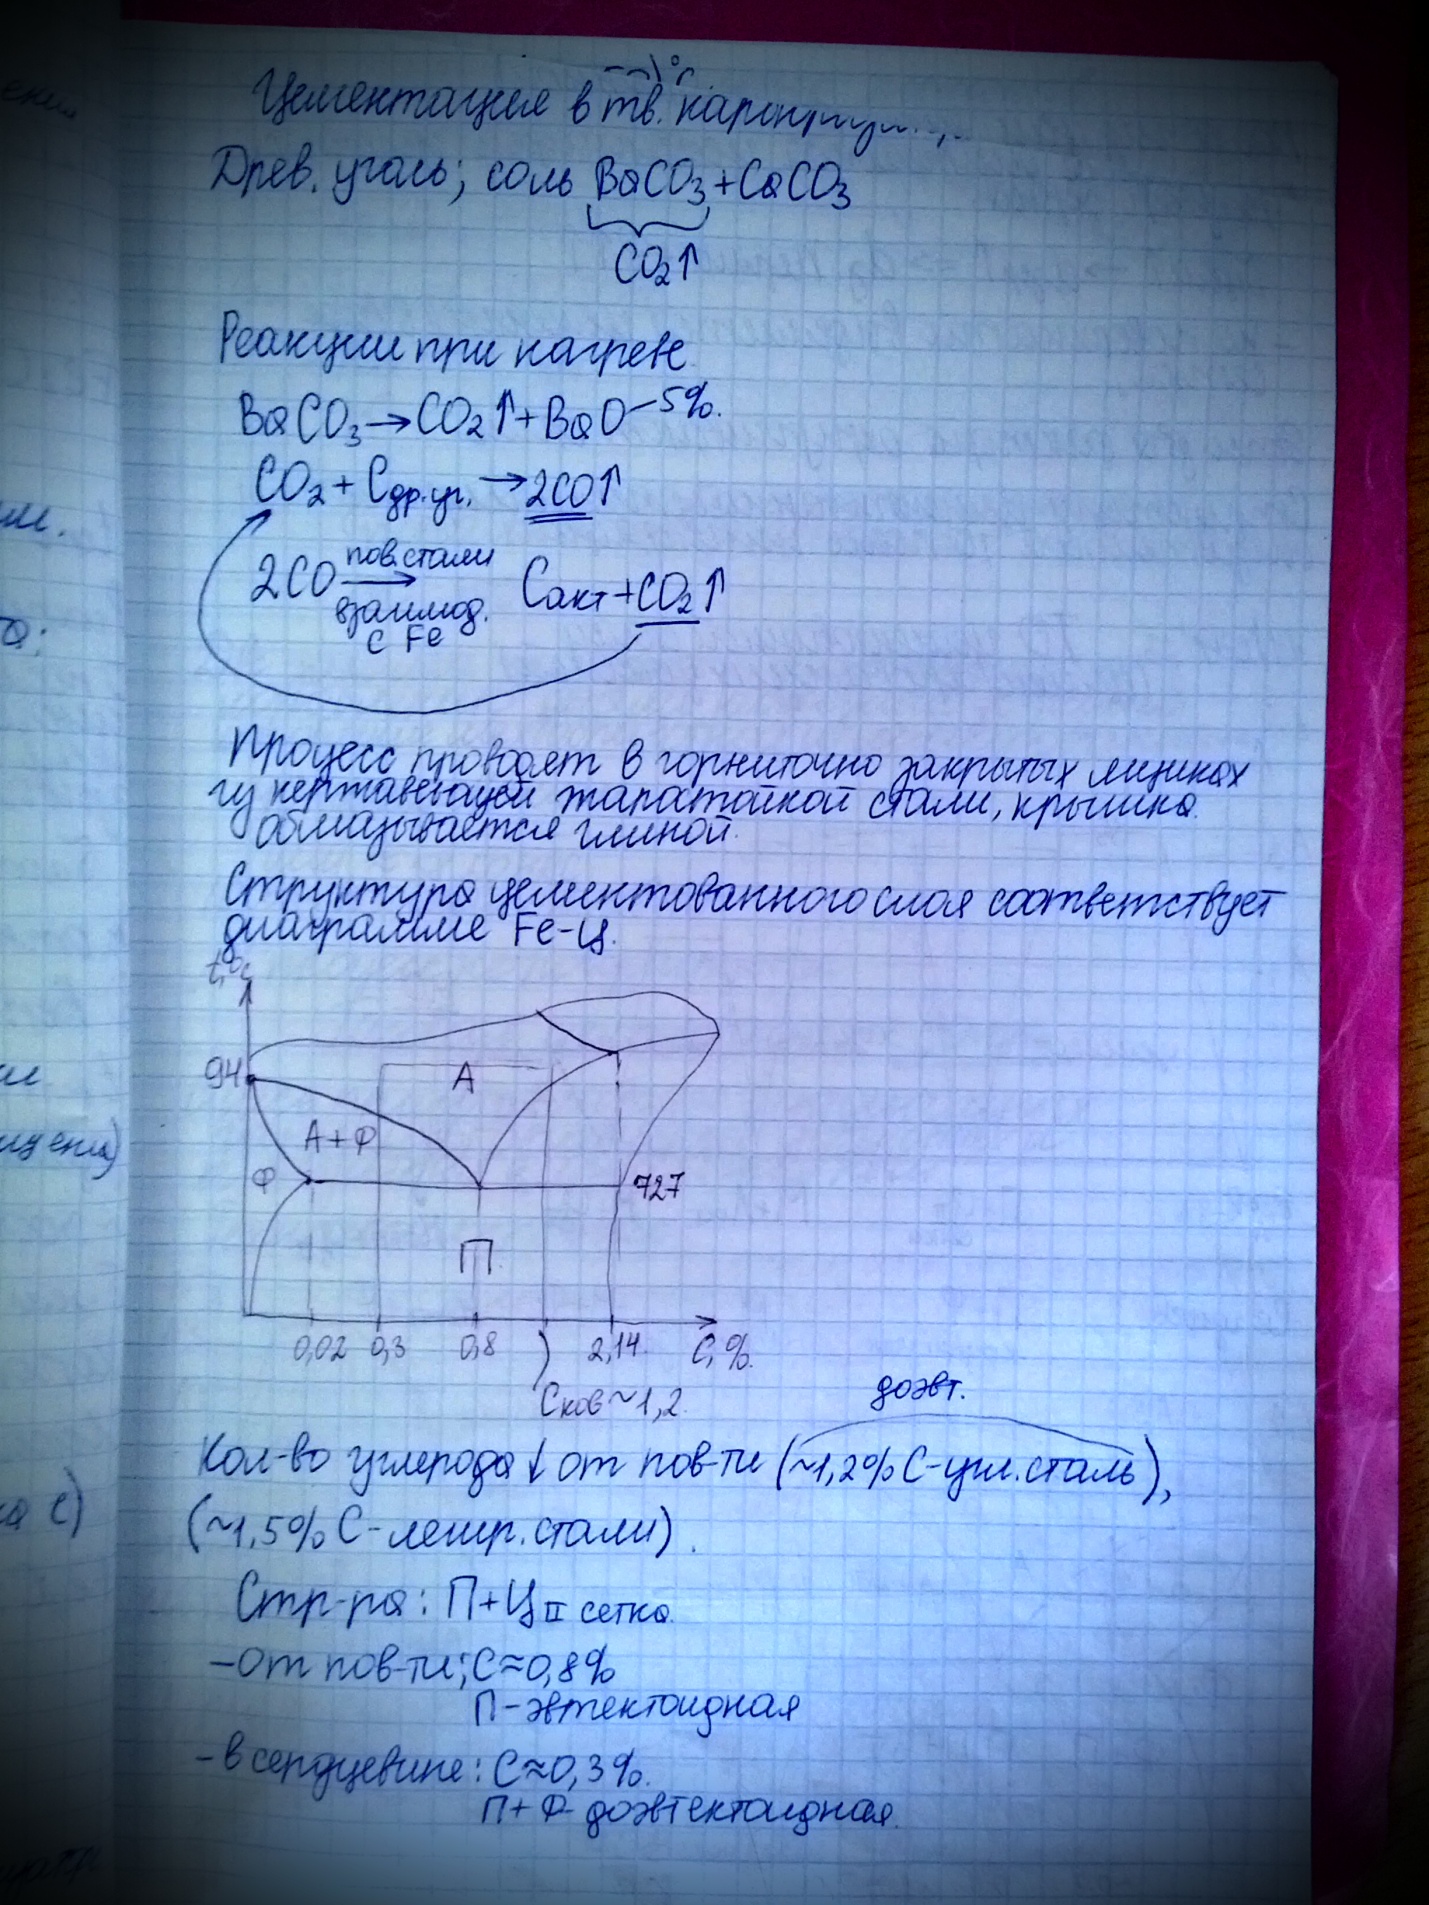 Цементация в тв.
Древ. уголь; соль BaCO₃+CaCO₃
CO₂↑
Реакции при нагреве
BaCO₃→CO₂↑+BaO-5%.
CO₂+Cдр.уг.→2CO↑
2CO пов.стали взаимод. с Fe → Cакт+CO₂↑
Процесс проводят в закрытых ящиках
из нержавеющей стали, крышка
обмазывается глиной.
Структура цементованного слоя соответствует
диаграмме Fe-Ц.
t,°C
А
А+Ф
Ф
727
П
0,02 0,3 0,8 2,14 C,%.
~1,2
доэвт.
Кол-во углерода ↓ от пов-ти (~1,2% C-угл.сталь),
(~1,5% C-легир.стали).
Стр-ра: П+Ц II сетка
-От пов-ти; C≈0,8%
П-эвтектоидная
-в сердцевине: C≈0,3%.
П+Ф-доэвтектоидная.